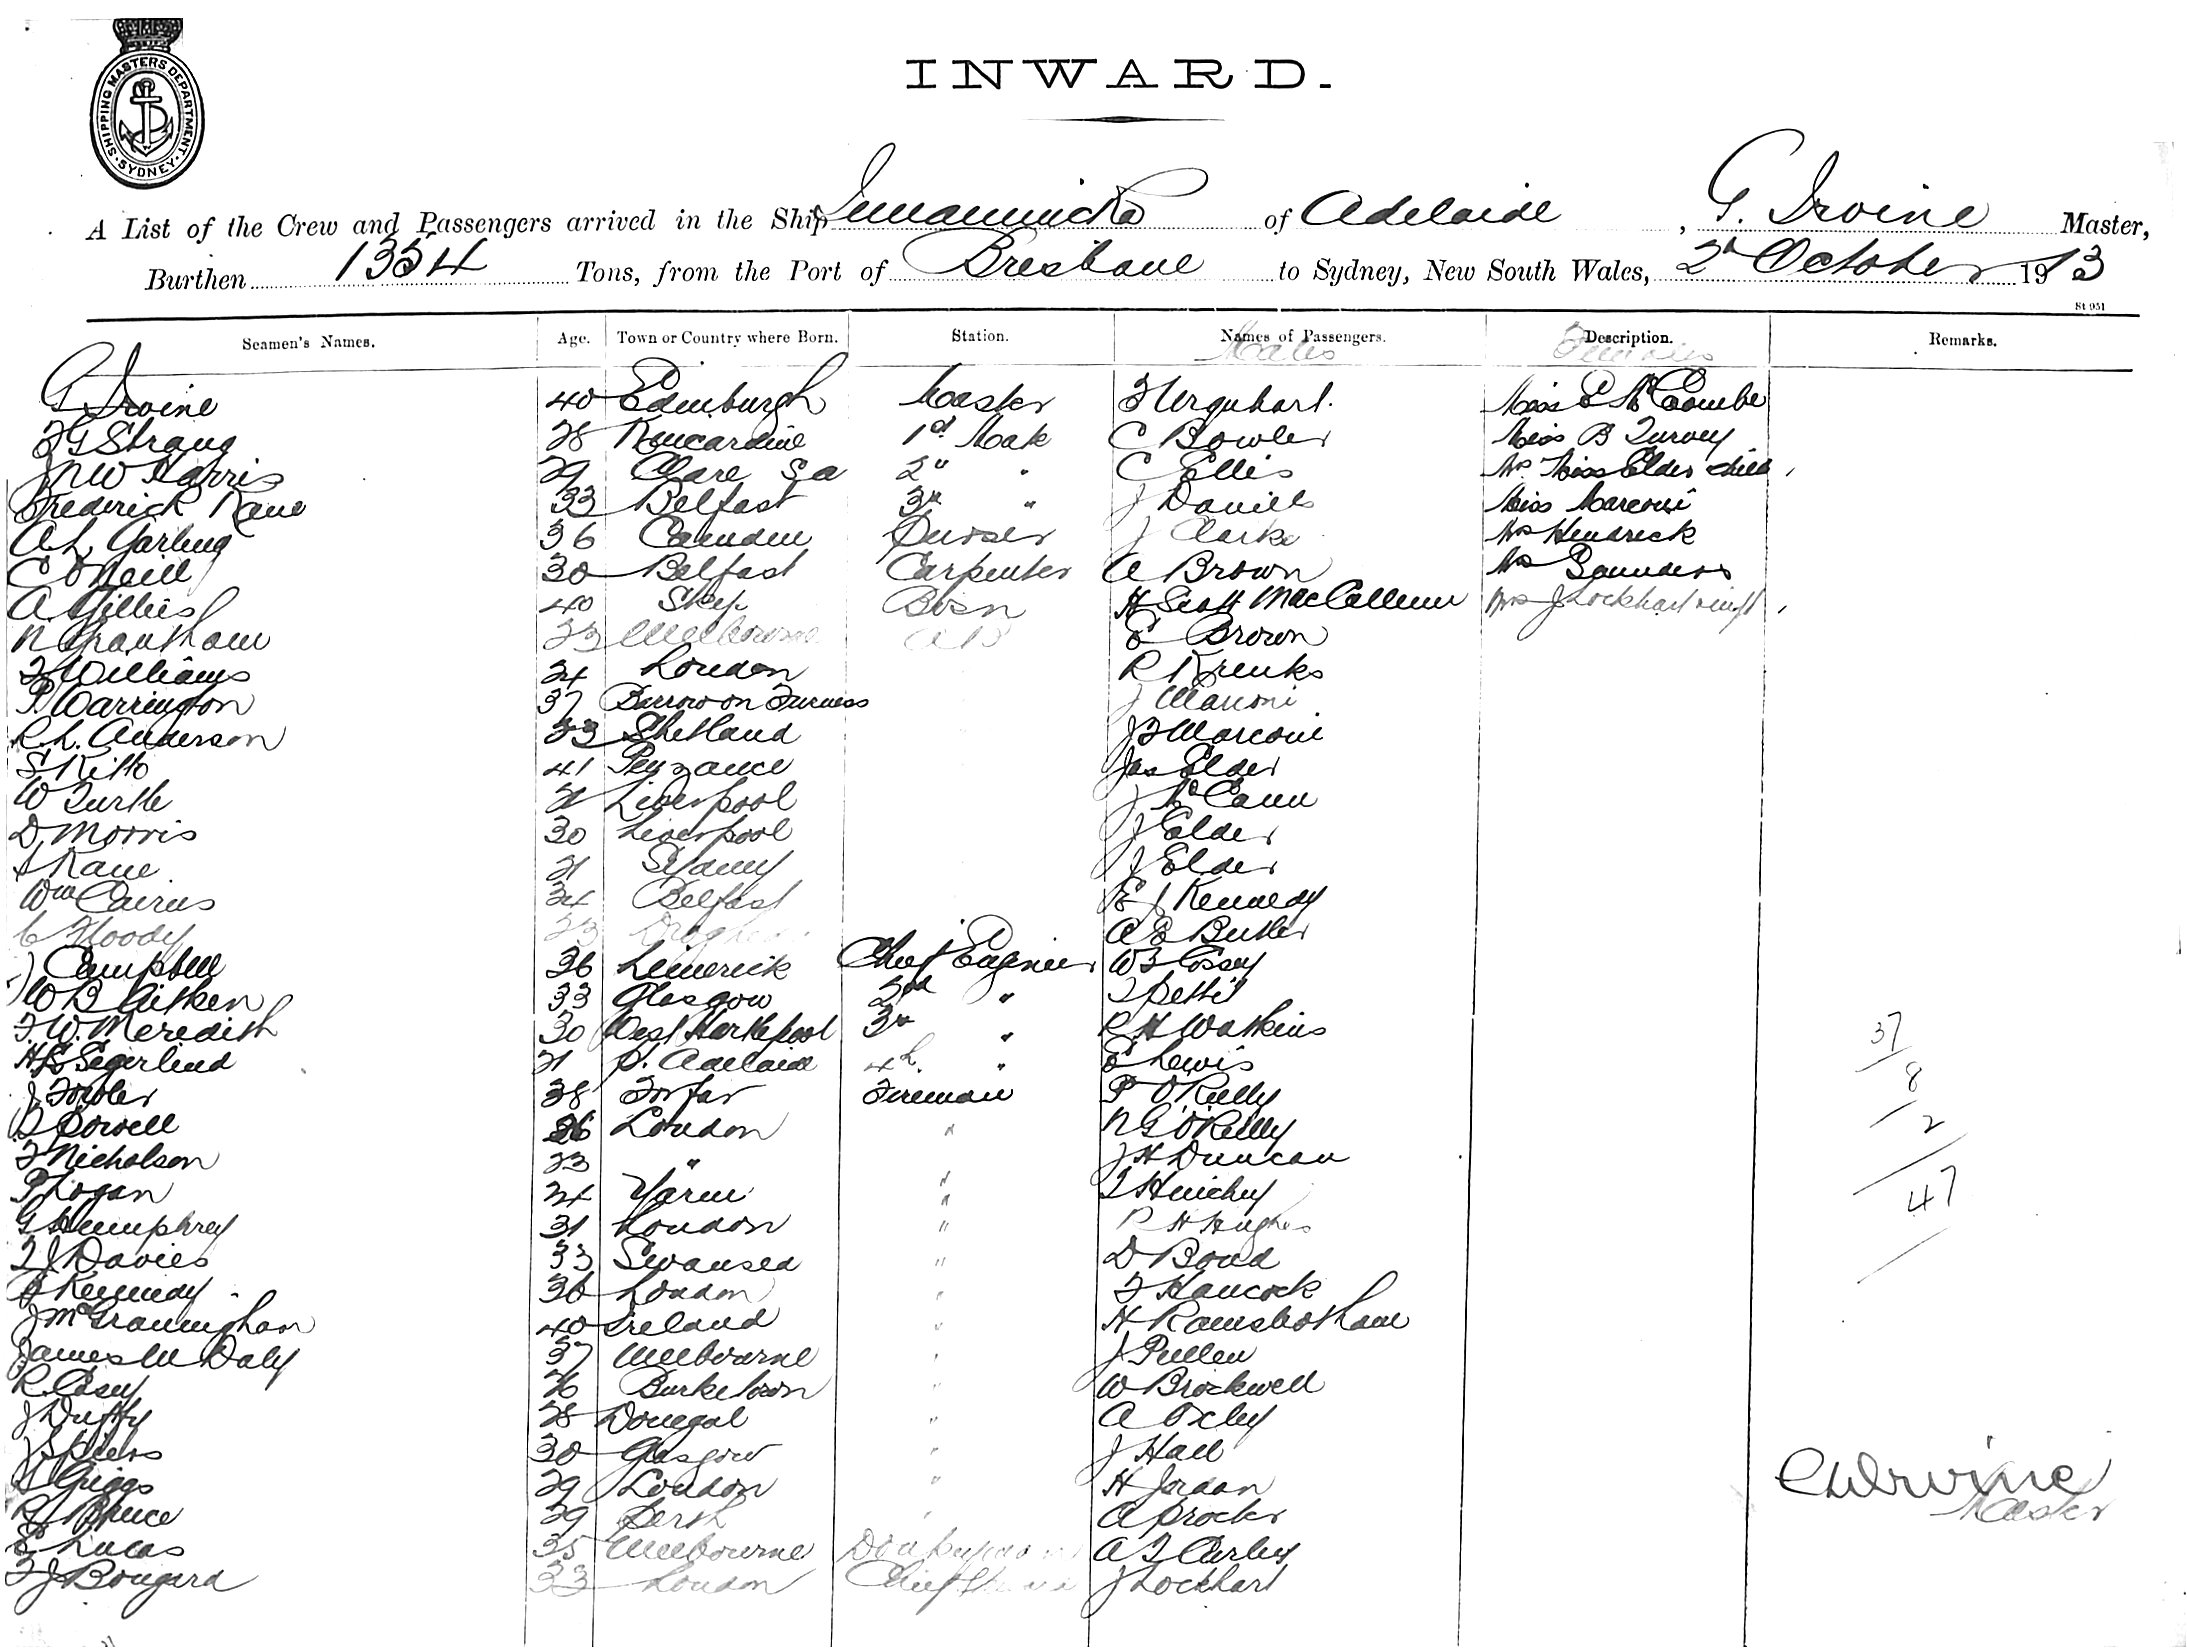 SHIPPING MASTERS DEPARTMENT · SYDNEY ·
INWARD.
A List of the Crew and Passengers arrived in the Ship Innamincka of Adelaide, G. Irvine Master,
Burthen 1354 Tons, from the Port of Brisbane to Sydney, New South Wales, 2d October 1913
St 951
Seamen's Names. Age. Town or Country where Born. Station. Names of Passengers. Description. Remarks.
Males Females
G Irvine 40 Edinburgh Master F Urquhart. Miss E McCombe
F G Strang 28 Kincardine 1st Mate C Bowler Miss B Turvey
J N W Harris 29 Clare S a 2" " C Ellis Mrs Miss Elder child
Frederick Kane 33 Belfast 3r " J Daniels Miss Marconi
A L Garling 36 Camden Purser J Clarke Mrs Hendrick
C O'Neill 30 Belfast Carpenter A Brown Mrs Saunders
A Gillies 40 Skye Bosn H Scott MacCallum Mrs J Lockhart
N Grantham 23 Melbourne A B E Brown
F Williams 24 London R Krenks
P. Warrington 37 Barrow on Furness J Marconi
R. L. Anderson 23 Shetland J B Marconi
S Kitto 41 Penzance Jas Elder
W Turtle 21 Liverpool J McCann
D Morris 30 Liverpool J Elder
Kane 21 Sydney J Elder
Wm Cairns 34 Belfast E J Kennedy
C Floody 23 Drogheda A E Butler
J Campbell 36 Limerick Chief Engineer W F Cossey
W B Aitken 33 Glasgow 2nd " T Pettit
F. W. Meredith 30 West Hartlepool 3r " R H Watkins
H E Segerlind 21 P. Adelaide 4h " E Lewis
J Fowler 38 Forfar Fireman P O'Reilly
Powell 26 London " N G O'Reilly
F Nicholson 23 " J H Duncan
P Logan 24 Yarm " T Hinchy
G Humphrey 31 London " R H Hughes
T J Davies 33 Swansea " D Bond
Kennedy 36 London " F Hancock
J McGranninghan 40 Ireland " H Ramsbotham
James M Daly 37 Melbourne " J Pullen
R. Casey 26 Burketown " W Brockwell
J Duffy 28 Donegal " A Oxley
J Spiers 30 Glasgow " J Hall
Griggs 29 London " H Jordan
R J Bruce 29 Perth " A Procter
E Lucas 35 Melbourne Donkeyman A T Curley
F J Bongard 33 London Chief J Lockhart
37
8
2
47
Irvine
Master